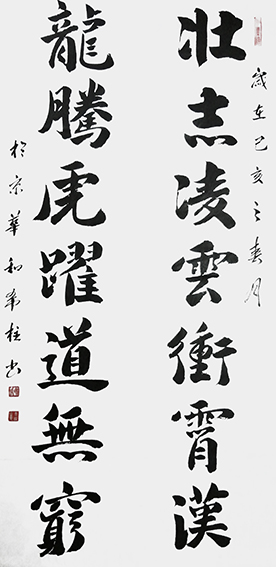 歲在己亥之春月
壯志凌雲衝霄漢
龍騰虎躍道無窮
於京華和